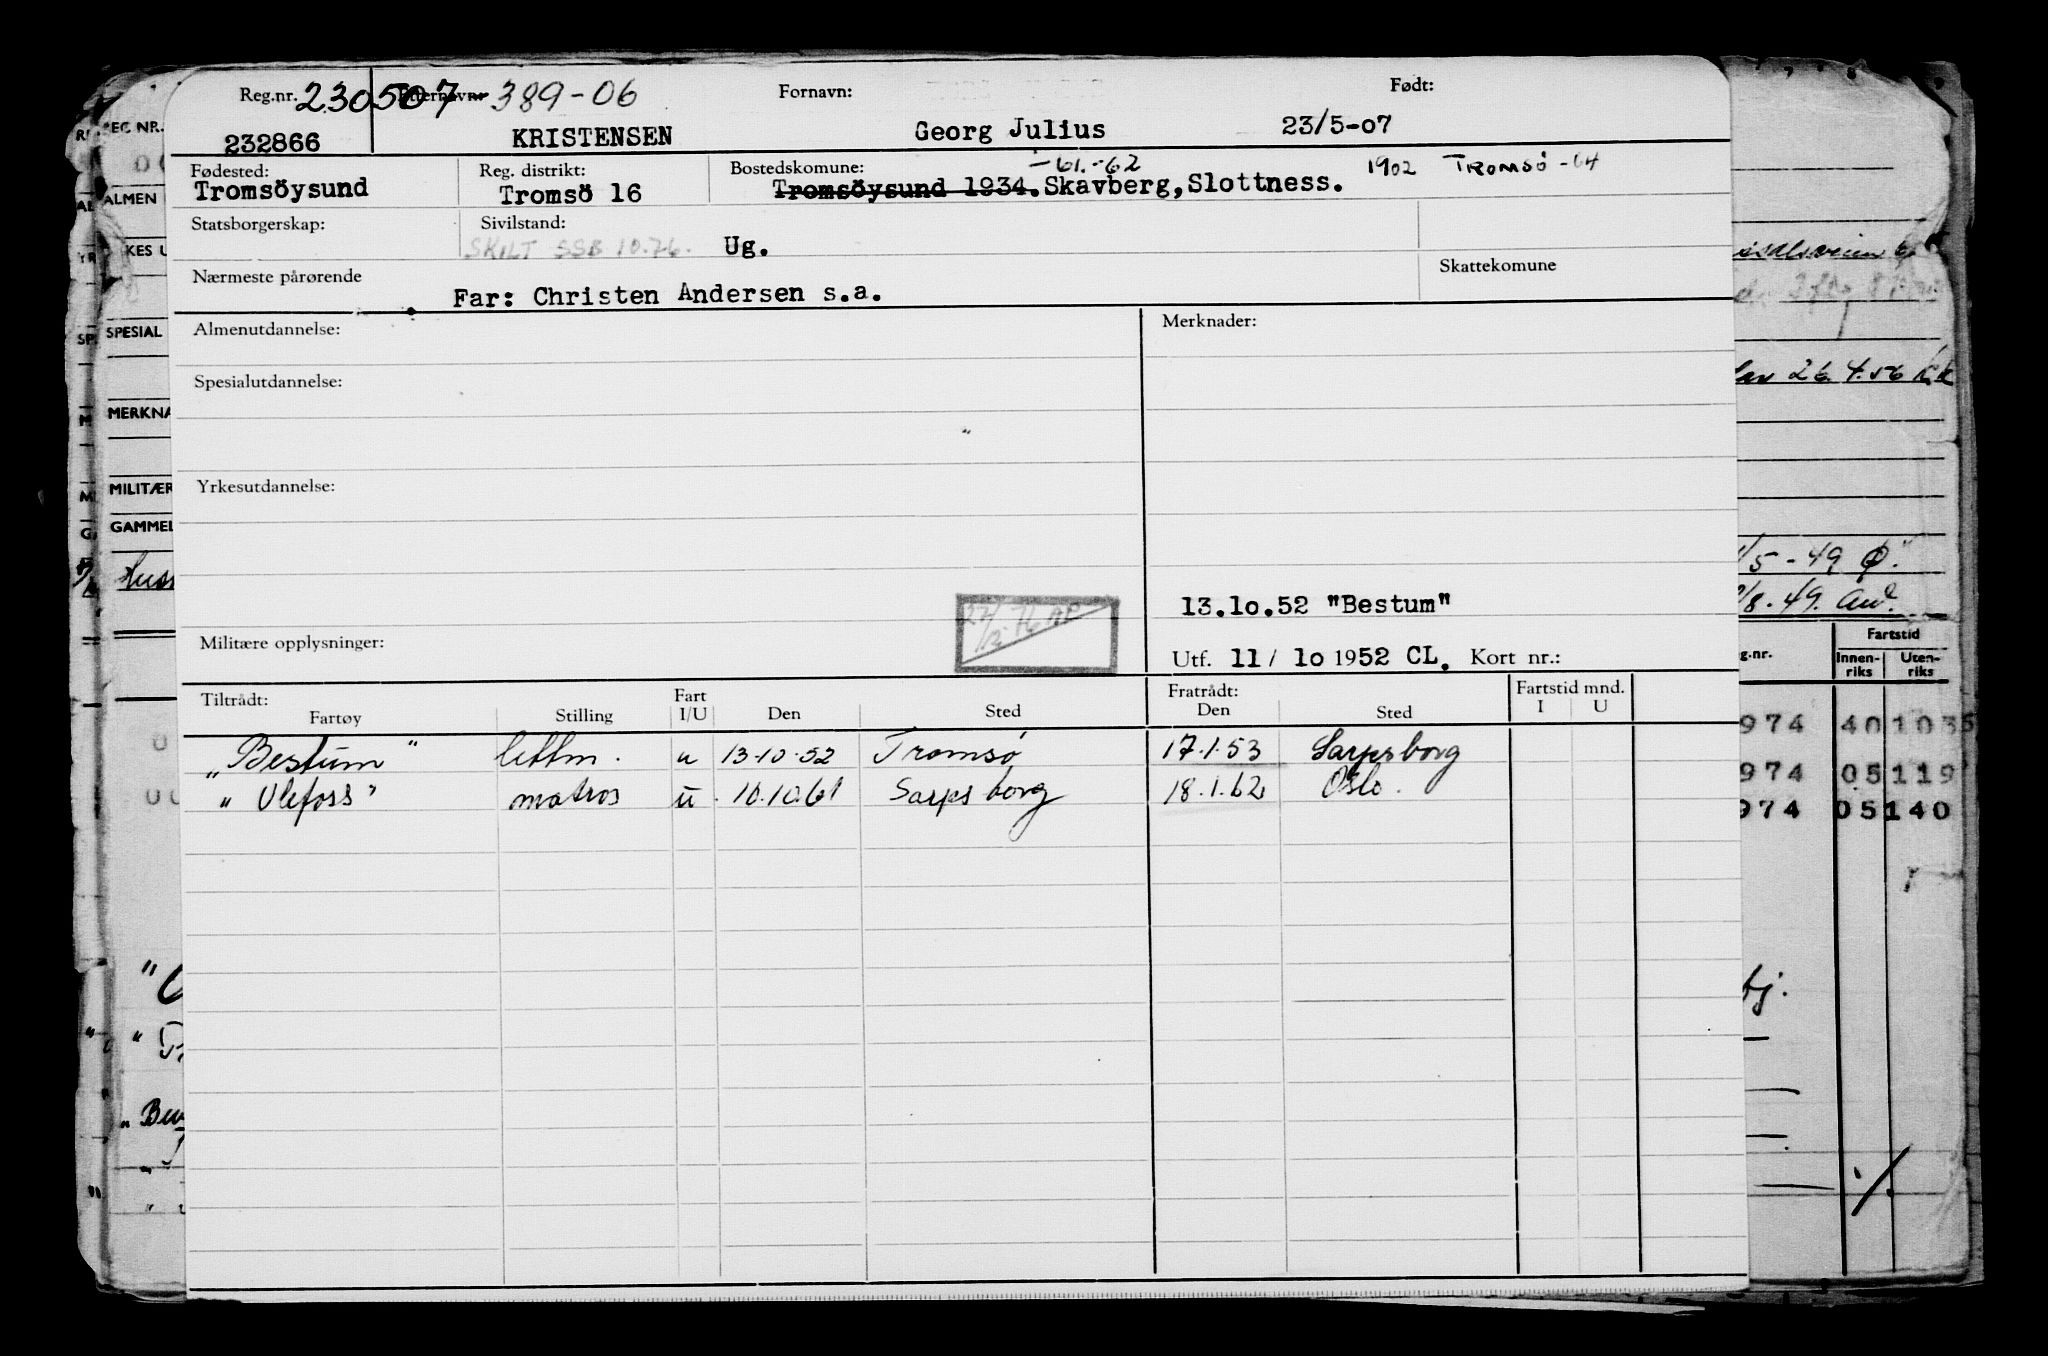 Reg.nr. 230507 Efternavn: 389-06 Fornavn: Født:
232866 KRISTENSEN Georg Julius 23/5-07
Fødested: Reg. distrikt: Bostedskomune: -61.-62 1902 TROMSÖ -64
Tromsöysund Tromsö 16 Tromsöysund 1934. Skavberg, Slottness.
Statsborgerskap: Sivilstand:
SKILT SSB 10.76. Ug.
Nærmeste pårørende Skattekomune
Far: Christen Andersen s.a.
Almenutdannelse: Merknader:
Spesialutdannelse:
Yrkesutdannelse:
27/12-76 AP
13.10.52 "Bestum"
Militære opplysninger: Utf. 11/ 10 1952 CL. Kort nr.:
Tiltrådt: Fart Fratrådt: Fartstid mnd.
Fartøy Stilling I/U Den Sted Den Sted I U
"Bestum" lettm. u 13-10-52 Tromsø 17.1.53 Sarpsborg
"Ulefoss" matros u. 10.10.61 Sarpsborg 18.1.62 Oslo.
REG NR.
ALMEN
KES U
SPESIAL
MERKNA
MILITÆR
GAMMEL
26.4.56
/5-49
/8.49.
Fartstid
g.nr. Innen-riks Uten-riks
974 40 1035
974 05 119
974 05 140